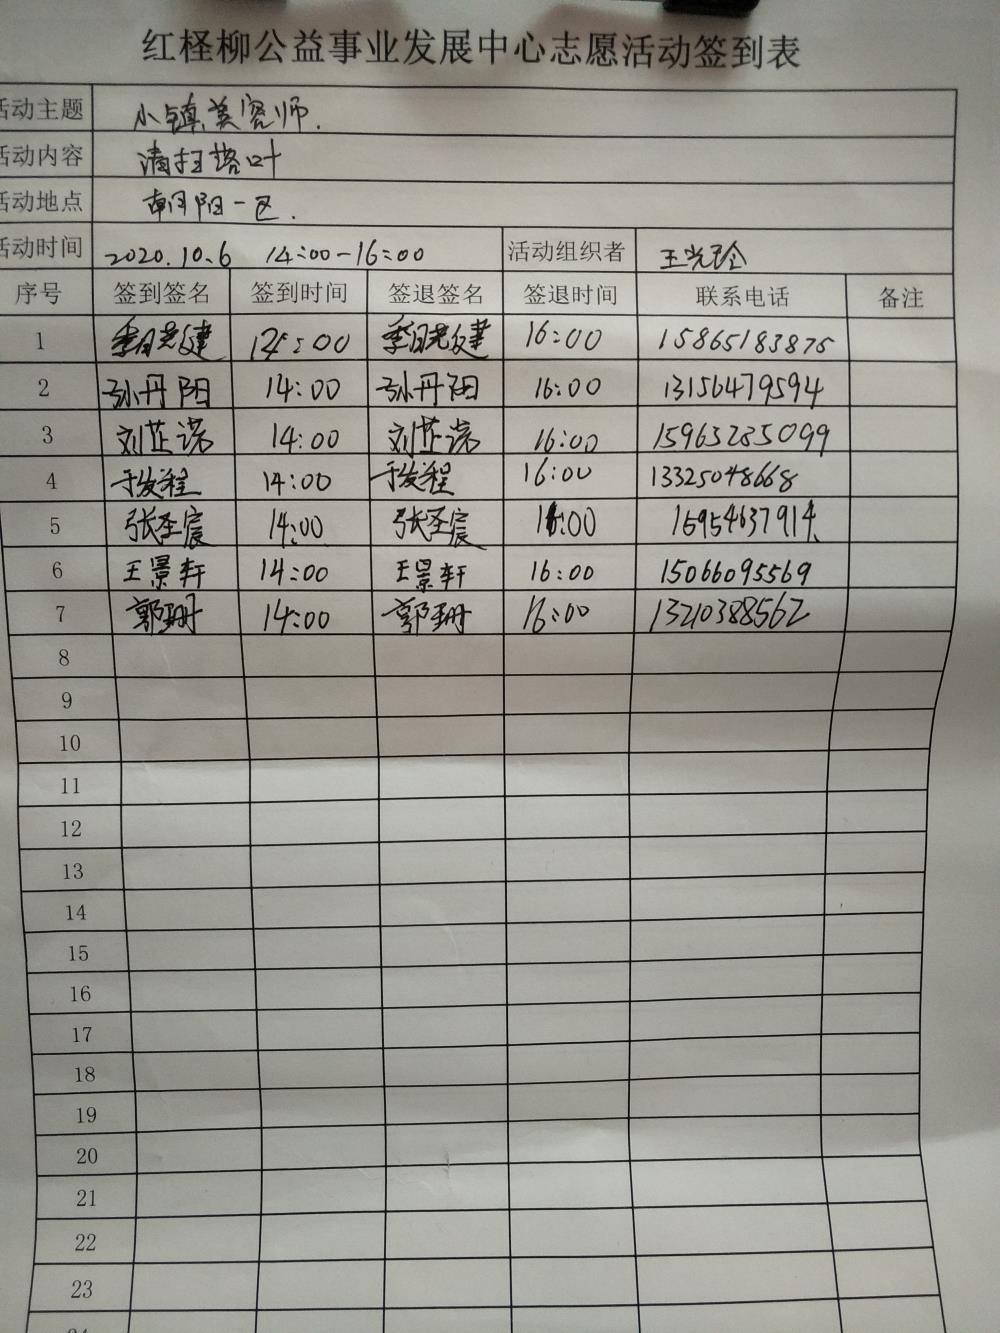 红柽柳公益事业发展中心志愿活动签到表
活动主题 小镇美容师.
活动内容 清扫落叶
活动地点 朝阳一区.
活动时间 2020.10.6 14:00-16:00 活动组织者 王光玲
序号 签到签名 签到时间 签退签名 签退时间 联系电话 备注
1 14:00 16:00 15865183875
2 孙丹阳 14:00 孙丹阳 16:00 13156479594
3 刘芷诺 14:00 刘芷诺 16:00 15963285099
4 于发程 14:00 于发程 16:00 13325048668
5 张圣宸 14:00 张圣宸 16:00 15954637914
6 王景轩 14:00 王景轩 16:00 15066095569
7 郭珊 14:00 郭珊 16:00 13210388562
8
9
10
11
12
13
14
15
16
17
18
19
20
21
22
23
24